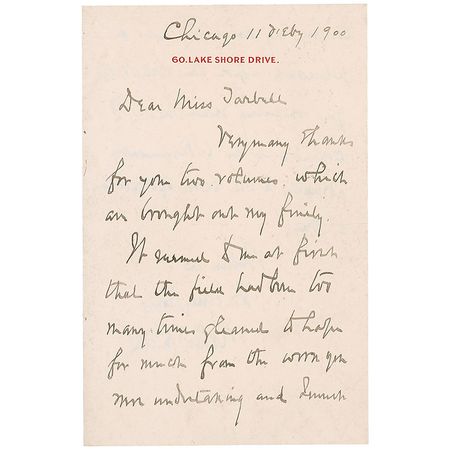 Chicago 11 Feby 1900
60. LAKE SHORE DRIVE.
Dear Miss Tarbell
Very many thanks
for your two volumes, which
are brought out very finely.
It seemed to me at first
that the field had been too
many times gleaned to hope
for much from the work you
were undertaking and I must